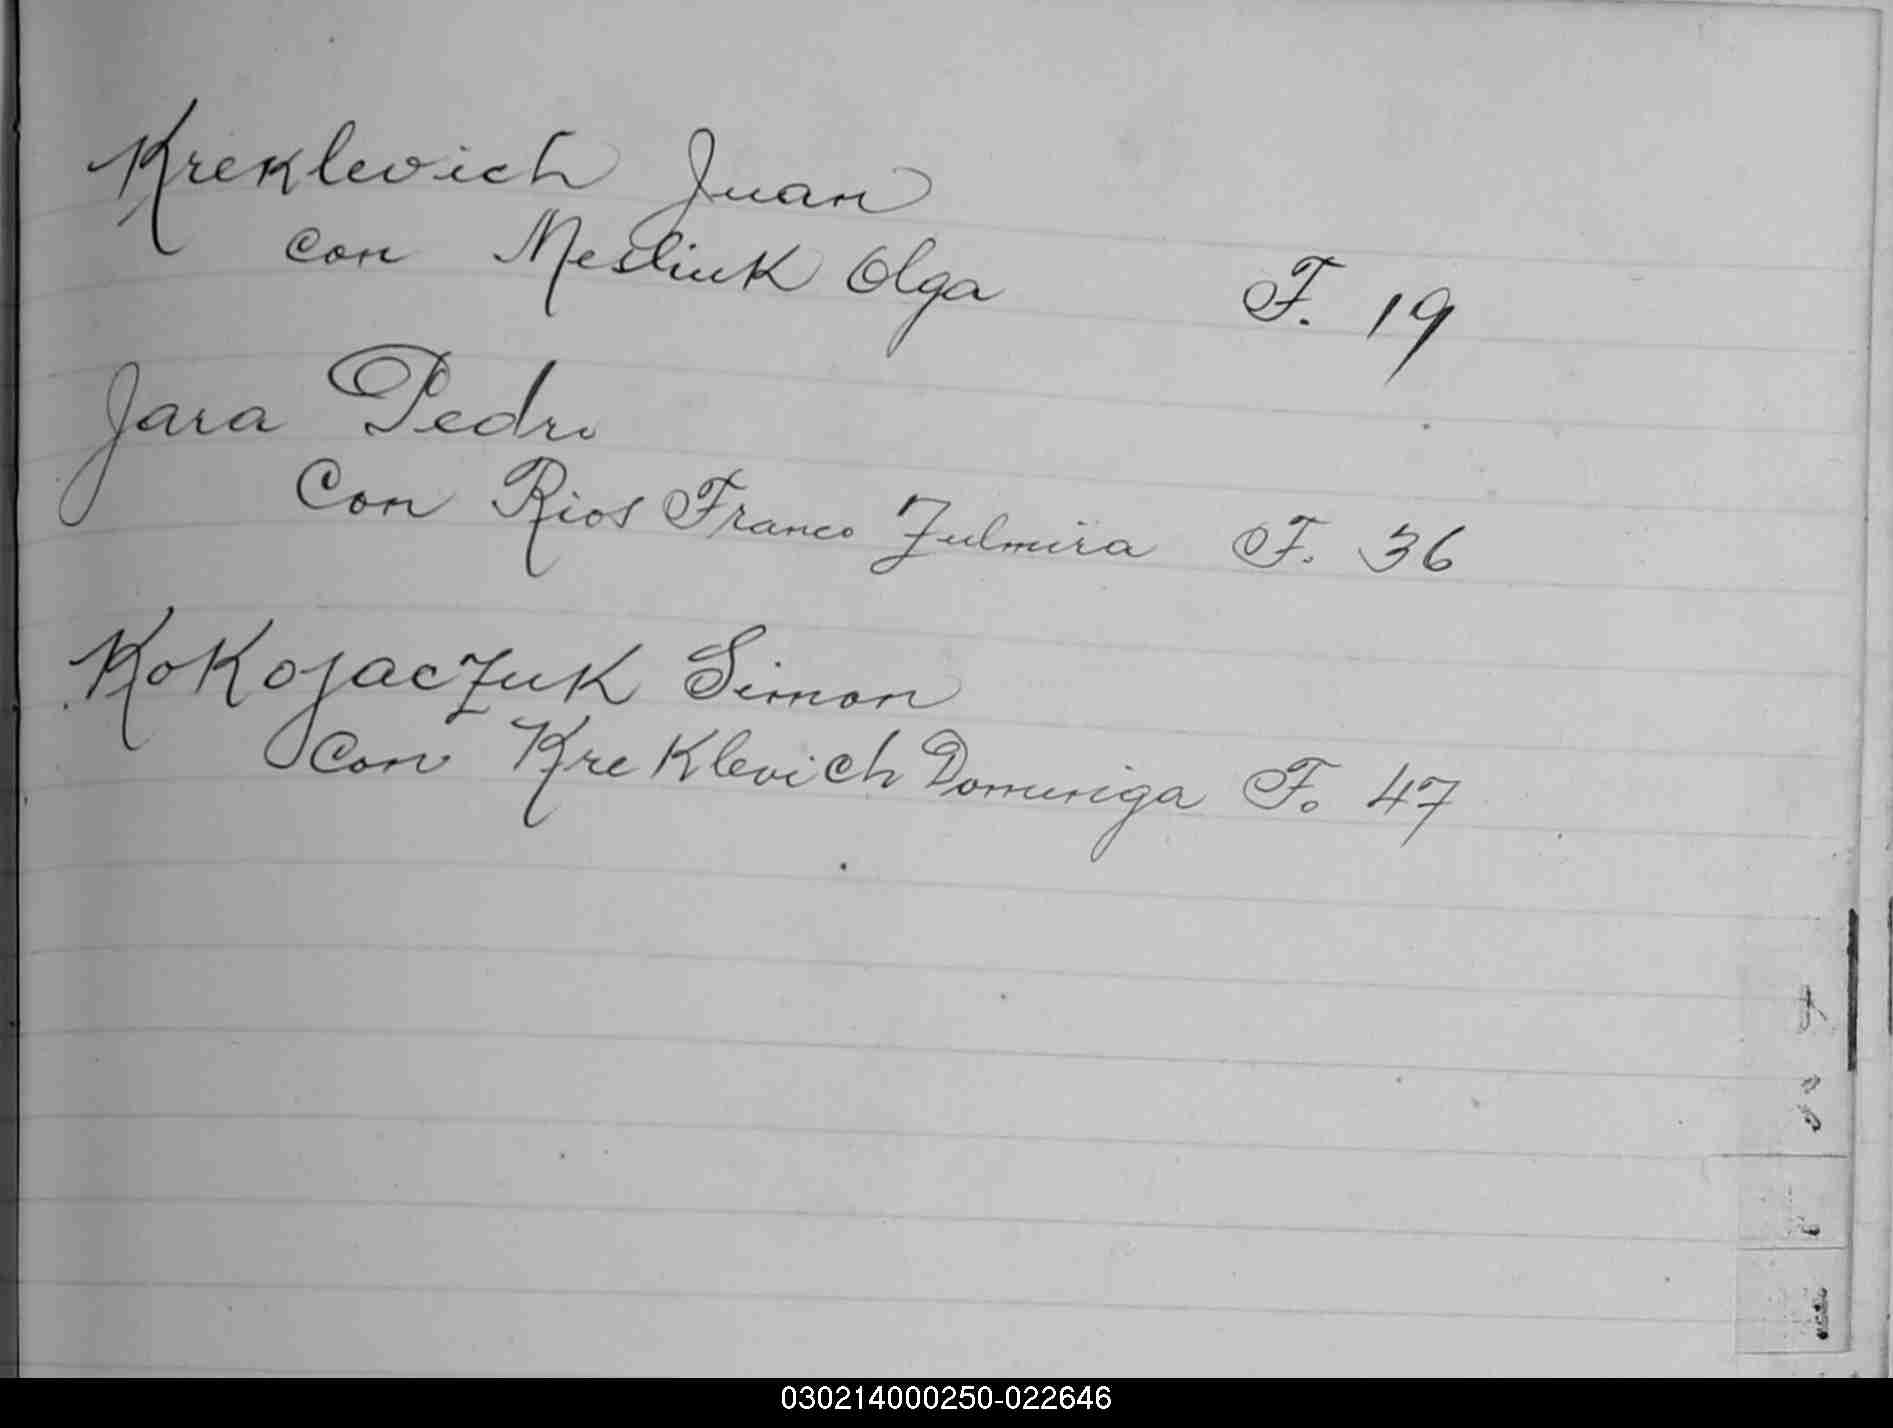 Kreklevich Juan
con Mesliuk Olga F. 19
Jara Pedro
Con Rios Franco Zulmira F. 36
Kokojaczuk Simon
Con Kreklevich Domuniga F. 47
030214000250-022646